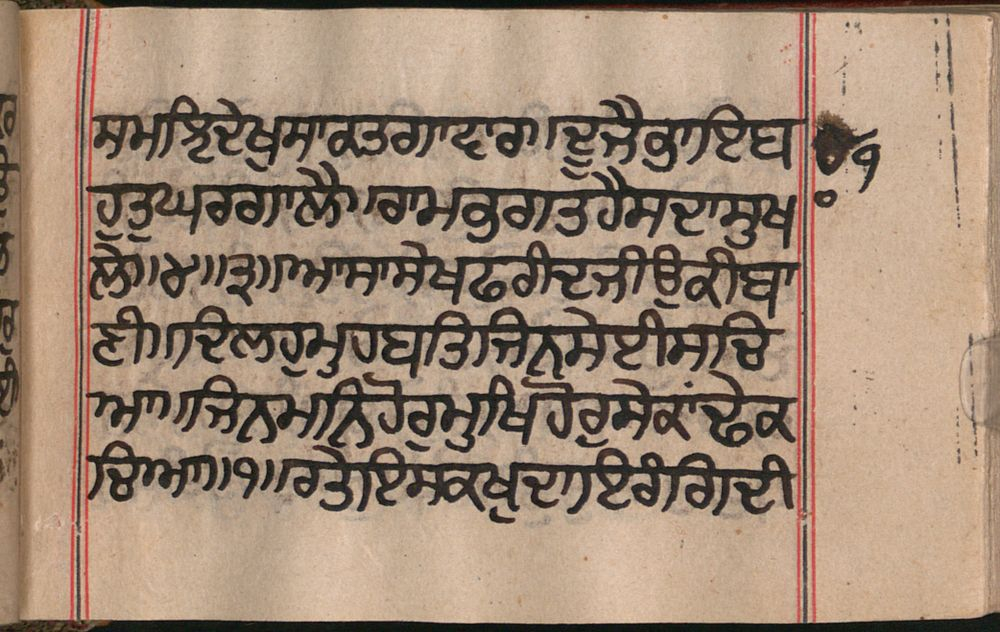 ਸਮਝਿਦੇਖੁਸਾਕਤਗਾਵਾਰਾ॥ਦੂਜੈਭਾਇਬ
ਹੁਤੁਘਰਗਾਲੈ॥ਰਾਮਭਗਤਹੈਸਦਾਸੁਖ
ਲੇ॥੪॥੩॥ਆਸਾਸੇਖਫਰੀਦਜੀਉਕੀਬਾ
ਣੀ॥ਦਿਲਹੁਮੁਹਬਤਿਜਿਨਸੇਈਸਚਿ
ਆ॥ਜਿਨਮਨਿਹੋਰੁਮੁਖਿਹੋਰੁਸੇਕਾਂਢੇਕ
ਚਿਆ॥੧॥ਰਤੇਇਸਕਖੁਦਾਇਰੰਗਿਦੀ